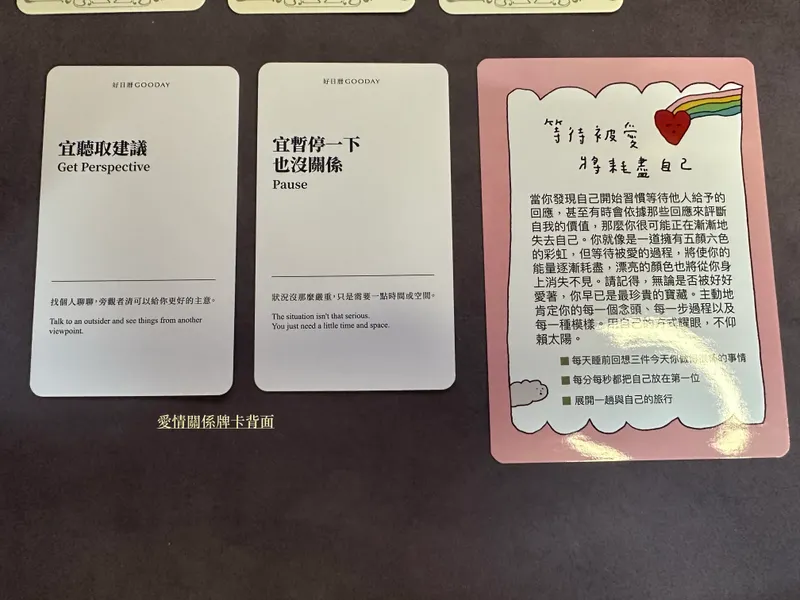 好日曆GOODAY
宜聽取建議
Get Perspective
找個人聊聊，旁觀者清可以給你更好的主意。
Talk to an outsider and see things from another
viewpoint.
好日曆GOODAY
宜暫停一下
也沒關係
Pause
狀況沒那麼嚴重，只是需要一點時間或空間。
The situation isn't that serious.
You just need a little time and space.
等待被愛
將耗盡自己
當你發現自己開始習慣等待他人給予的
回應，甚至有時會依據那些回應來評斷
自我的價值，那麼你很可能正在漸漸地
失去自己。你就像是一道擁有五顏六色
的彩虹，但等待被愛的過程，將使你的
能量逐漸耗盡，漂亮的顏色也將從你身
上消失不見。請記得，無論是否被好好
愛著，你早已是最珍貴的寶藏。主動地
肯定你的每一個念頭、每一步過程以及
每一種模樣。用自己的方式耀眼，不仰
賴太陽。
■每天睡前回想三件今天你做得很棒的事情
■每分每秒都把自己放在第一位
■展開一趟與自己的旅行
愛情關係牌卡背面